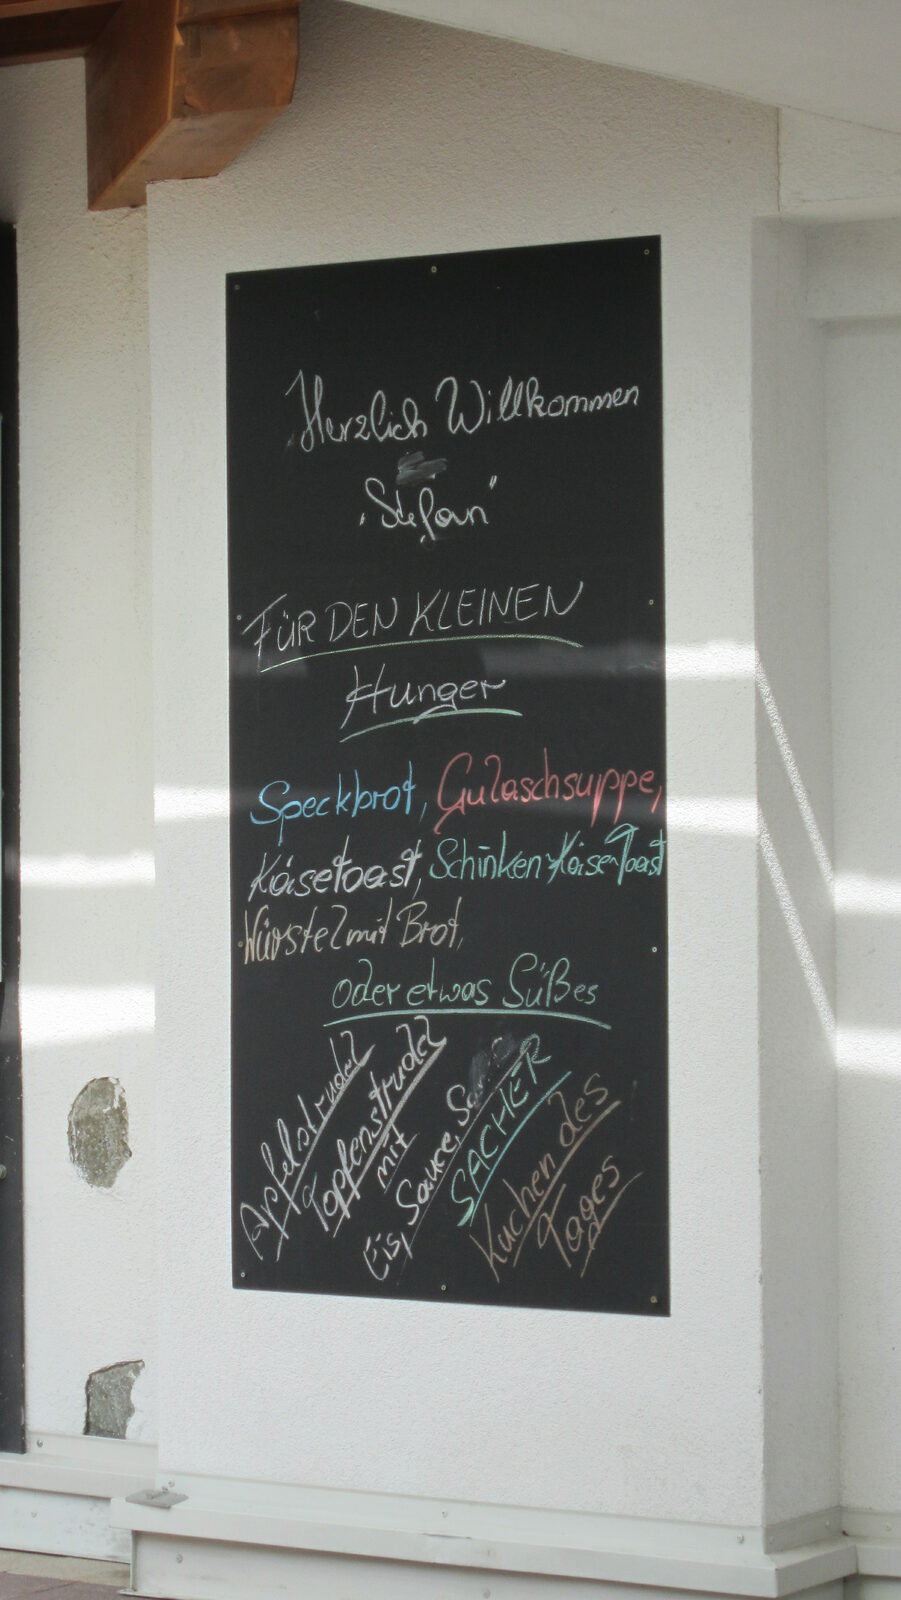 Herzlich Willkommen
"Stefan"
FÜR DEN KLEINEN
Hunger
Speckbrot, Gulaschsuppe,
Käsetoast, Schinken-Käse-Toast
Würstel mit Brot,
oder etwas Süßes
Apfelstrudel
Topfenstrudel
mit
Eis, Sauce,
SACHER
Kuchen des
Tages